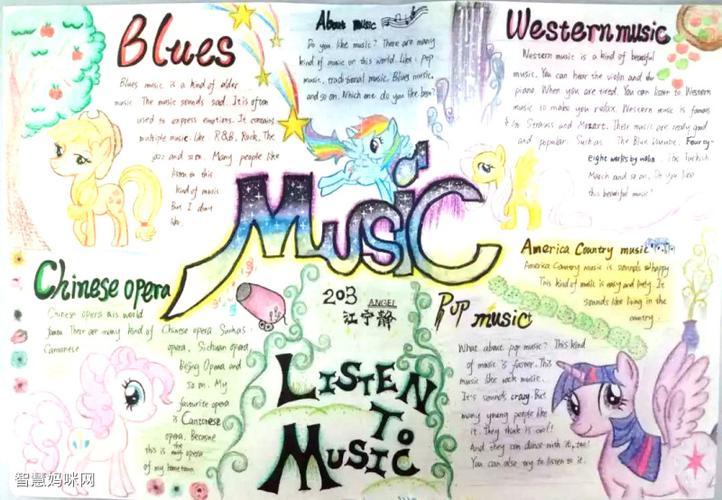 Blues
Blues music is a kind of older
music. The music sounds sad. It is often
used to express emotions. It contains
multiple music. like R&B, Rock, The
jazz and so on. Many people like
listen to this
kind of music
But I don't
like.
About music
Do you like music? There are many
kind of music in this world. Like: pop
music, traditional music, Blues music,
and so on. Which one do you like best?
Western music
Western music is a kind of beautiful
music. You can hear the violin and the
piano. When you are tired. You can listen to Western
music to make you relax. Western music is famous
Strauss and Mozart. Their music are really good
and popular. Such as The Blue Danube.
eight works by violin. The Turkish
March and so on. Do you like
this beautiful music?
MusiC
Chinese opera
Chinese opera is world
There are many kind of Chinese opera Such as:
Cantonese opera, Sichuan opera,
Beijing Opera and
so on. My
favourite opera
is Cantonese
opera. Because
this is the opera
of my hometown.
203 ANGEL
江宁静
LISTEN
To
MUSIC
America Country music
America Country music is sounds happy
This kind of music is easy and lively. It
sounds like living in the
country.
Pop music
What about pop music? This kind
of music is faster. This
music like rock music.
It's sounds crazy. But
many young people like
it. They think is cool!
And they can dance with it, too!
You can also try to listen to it.
智慧妈咪网